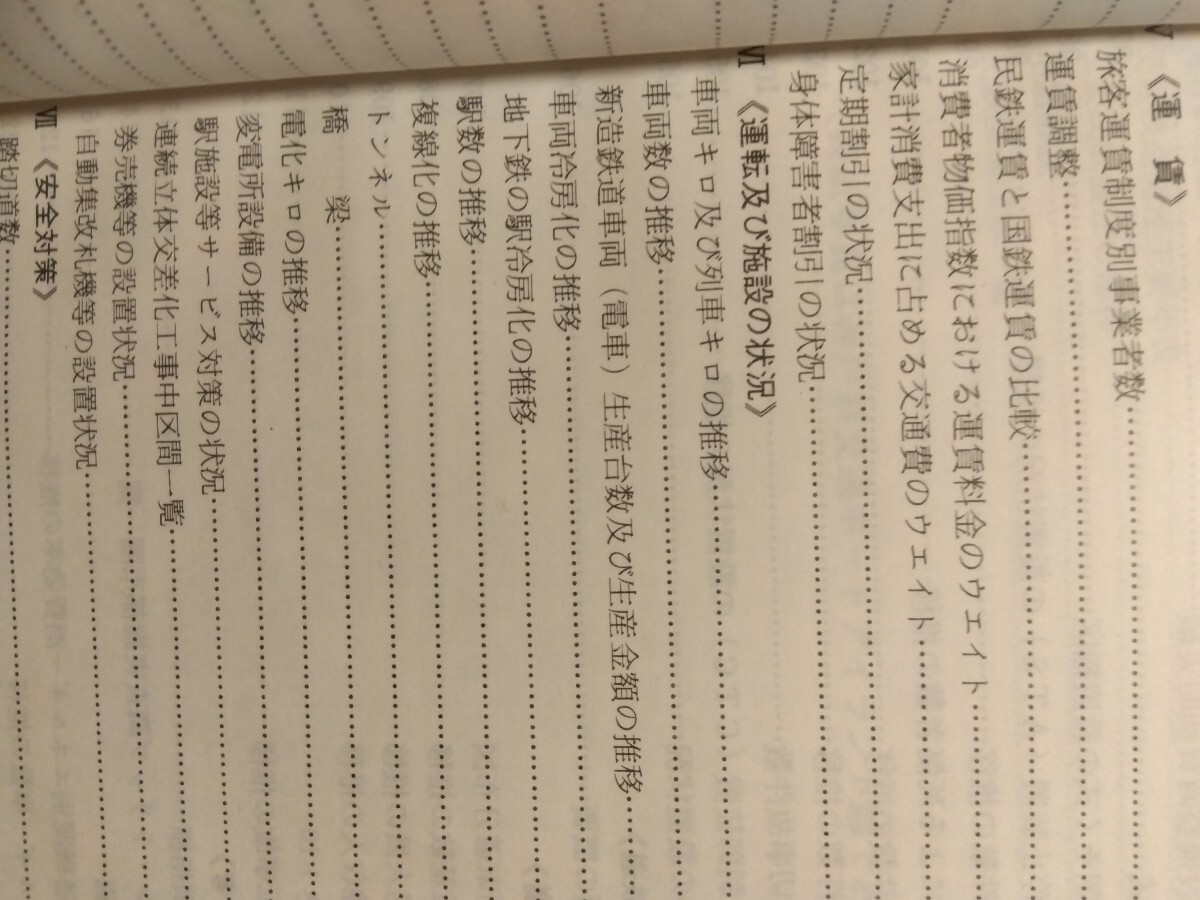 Ⅴ 《運　賃》
旅客運賃制度別事業者数
運賃調整
民鉄運賃と国鉄運賃の比較
消費者物価指数における運賃料金のウェイト
家計消費支出に占める交通費のウェイト
定期割引の状況
身体障害者割引の状況
Ⅵ 《運転及び施設の状況》
車両キロ及び列車キロの推移
車両数の推移
新造鉄道車両（電車）生産台数及び生産金額の推移
車両冷房化の推移
地下鉄の駅冷房化の推移
駅数の推移
複線化の推移
トンネル
橋　梁
電化キロの推移
変電所設備の推移
駅施設等サービス対策の状況
連続立体交差化工事中区間一覧
券売機等の設置状況
自動集改札機等の設置状況
Ⅶ 《安全対策》
踏切道数